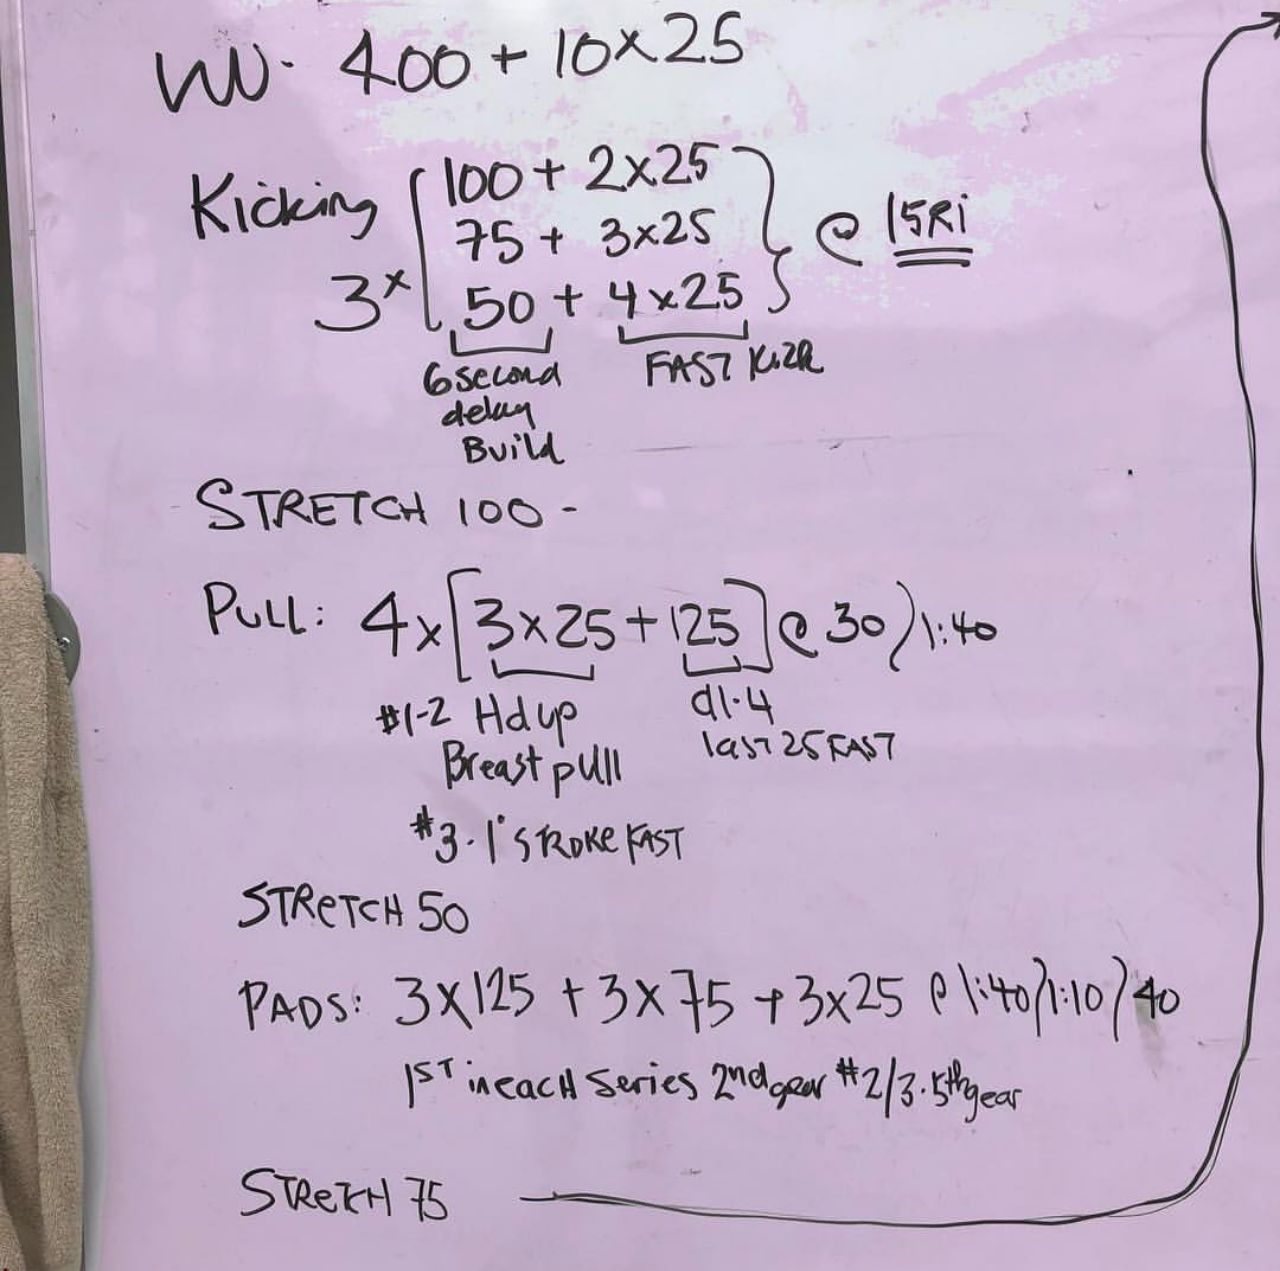 WU. 400 + 10x25
Kicking
3x
100 + 2x25
75 + 3x25
50 + 4x25
@ 15Ri
6 second
delay
Build
FAST Kick
STRETCH 100 -
PULL: 4x[3x25 + 125] @ 30 / 1:40
#1-2 Hd up
Breast pull
#3. 1' STROKE FAST
d1.4
last 25 FAST
STRETCH 50
PADS: 3x125 + 3x75 + 3x25 @ 1:40/1:10/40
1ST in each series 2nd gear #2/3. 5th gear
STRETCH 75